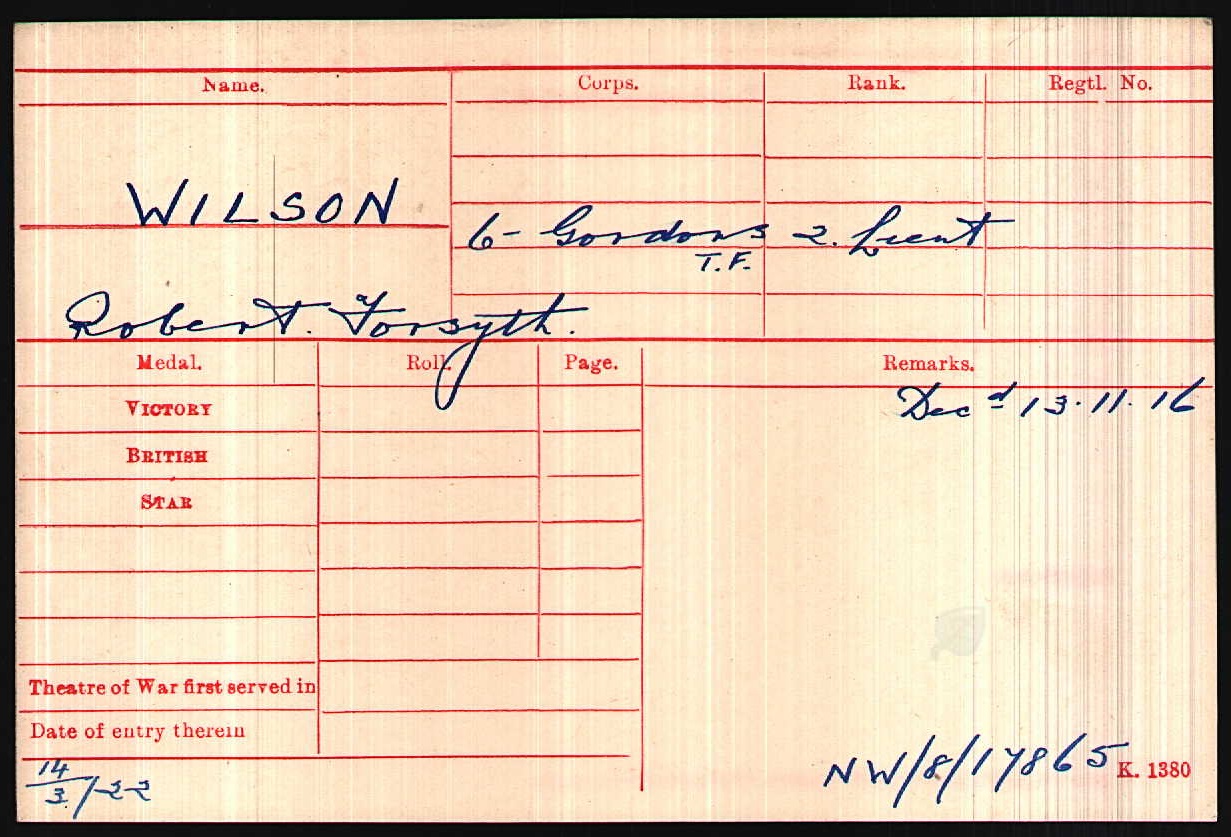 Name. Corps. Rank. Regtl. No.
WILSON
6- Gordons 2. Lieut
T.F.
Robert. Forsyth.
Medal. Roll. Page. Remarks.
VICTORY
Decd 13.11.16
BRITISH
STAR
Theatre of War first served in
Date of entry therein
14/3/22
NW/8/17865 K. 1380